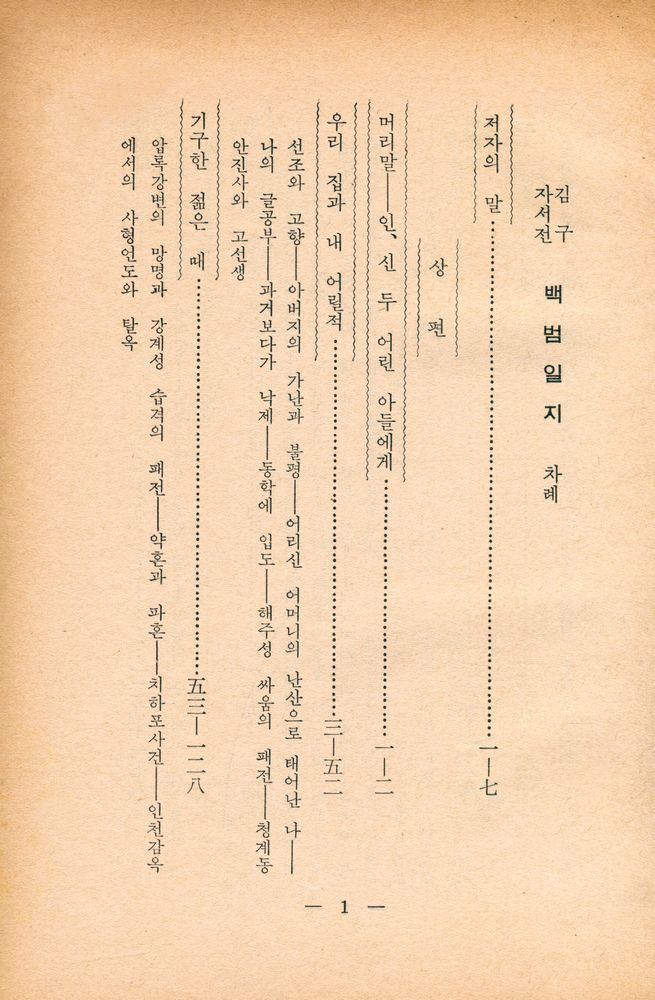 김 구
자서전
백범일지 차례
저자의 말……………一—七
상 편
머리말——인、신 두 어린 아들에게……………一—二
우리 집과 내 어릴적……………三—五二
선조와 고향——아버지의 가난과 불평——어리신 어머니의 난산으로 태어난 나——
나의 글공부——과거보다가 낙제——동학에 입도——해주성 싸움의 패전——청계동
안진사와 고선생
기구한 젊은 때……………五三—一二八
압록강변의 망명과 강계성 습격의 패전——약혼과 파혼——치하포사건——인천감옥
에서의 사형언도와 탈옥
— 1 —